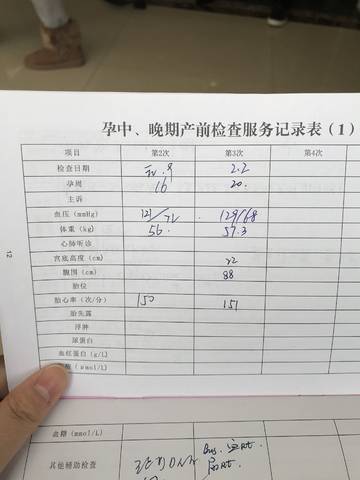 孕中、晚期产前检查服务记录表（1）
项目 第2次 第3次 第4次
检查日期 2.2
孕周 16 20.
主诉
血压（mmHg） 121/72 129/68
体重（kg） 56. 57.3
心肺听诊
宫底高度（cm） 22
腹围（cm） 88
胎位
胎心率（次/分） 150 151
胎先露
浮肿
尿蛋白
血红蛋白（g/L）
（μmol/L）
12
血糖（mmol/L）
其他辅助检查